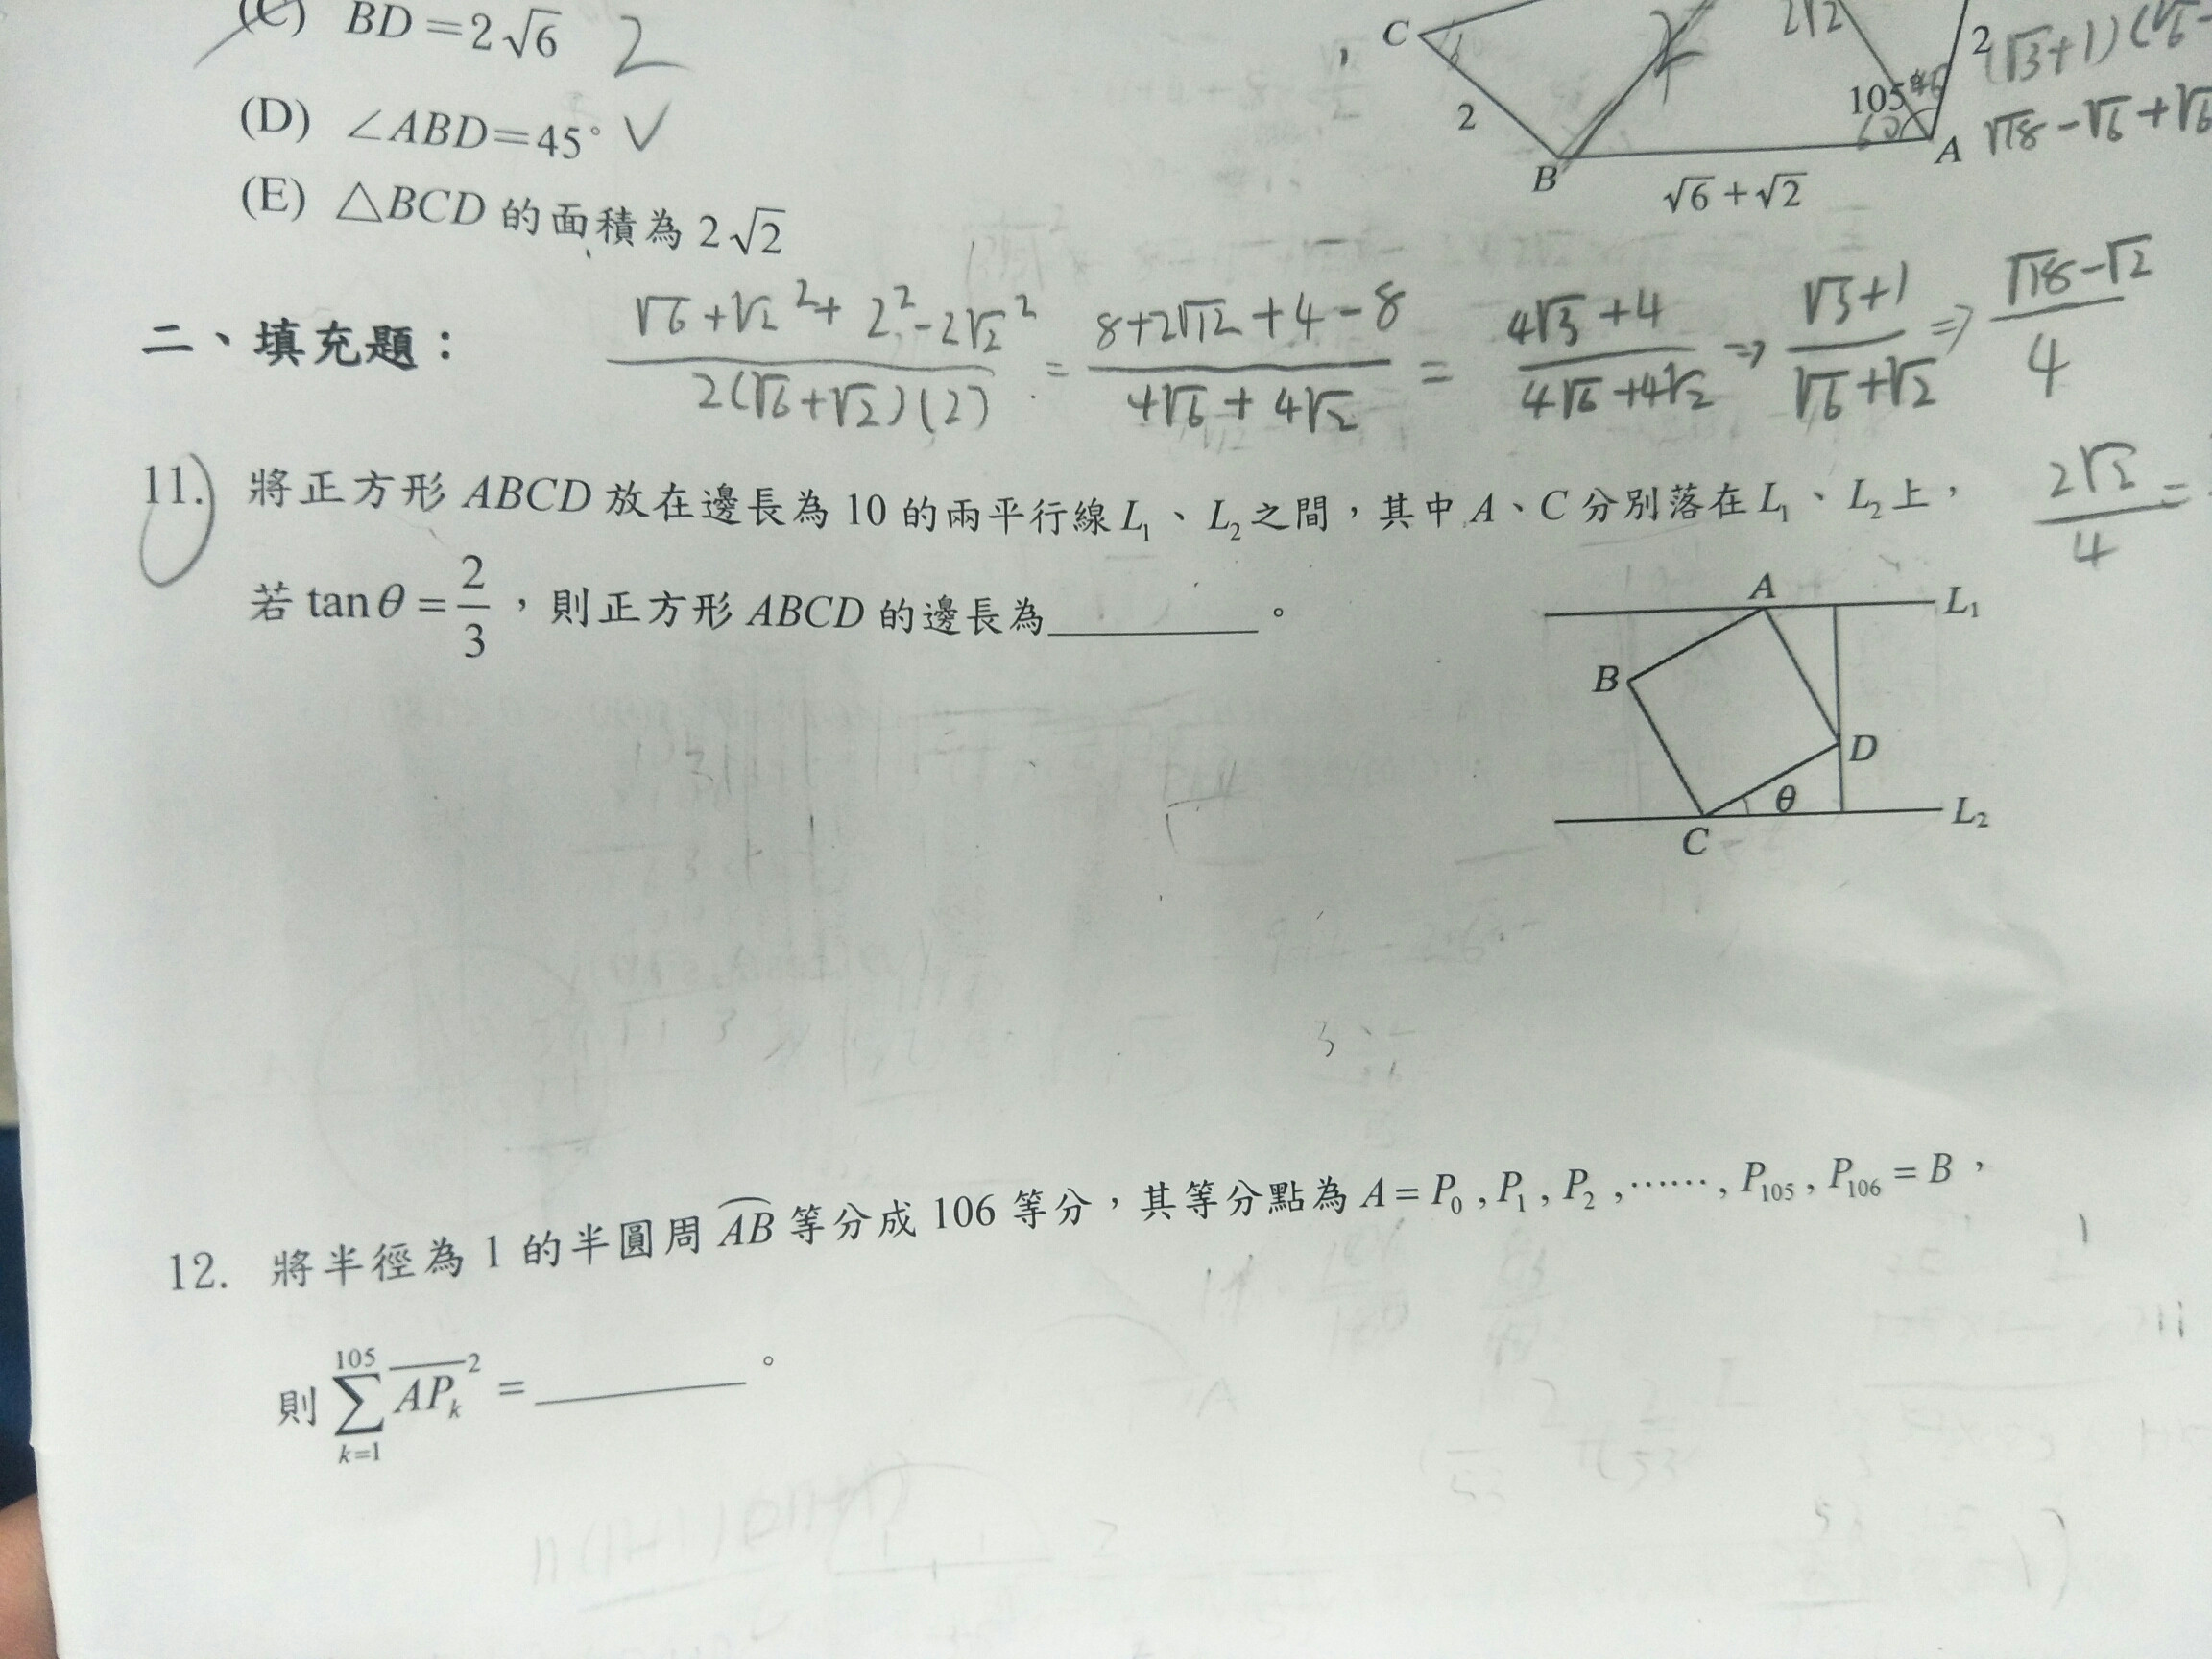 (C) BD＝2√6 2
(D) ∠ABD＝45° ✓
(E) △BCD 的面積為 2√2
C
2
B
√6＋√2
A
105°
60
2√2
2
(√3+1)(√6-
√18-√6+√6
二、填充題：
√6+√2²+2²-2√2² / 2(√6+√2)(2) = 8+2√12+4-8 / 4√6+4√2 = 4√3+4 / 4√6+4√2 => √3+1 / √6+√2 => √18-√2 / 4
2√2 / 4 =
11. 將正方形 ABCD 放在邊長為 10 的兩平行線 L₁、L₂之間，其中 A、C 分別落在 L₁、L₂上，
若 tanθ = 2/3，則正方形 ABCD 的邊長為________。
A
L₁
B
D
θ
C
L₂
12. 將半徑為 1 的半圓周 AB 等分成 106 等分，其等分點為 A = P₀ , P₁ , P₂ ,⋯⋯, P₁₀₅ , P₁₀₆ = B，
則 ∑_{k=1}^{105} AP_k² = ________。